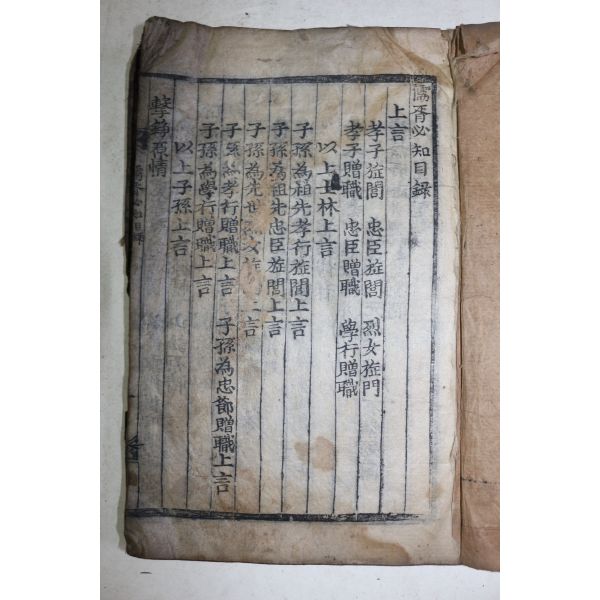 儒胥必知目錄
上言
孝子旌閭 忠臣旌閭 烈女旌門
孝子贈職 忠臣贈職 學行贈職
以上士林上言
子孫為祖先孝行旌閭上言
子孫為祖先忠臣旌閭上言
子孫為先世烈女旌 上言
子孫為孝行贈職上言 子孫為忠節贈職上言
子孫為學行贈職上言
以上子孫上言
擊錚原情